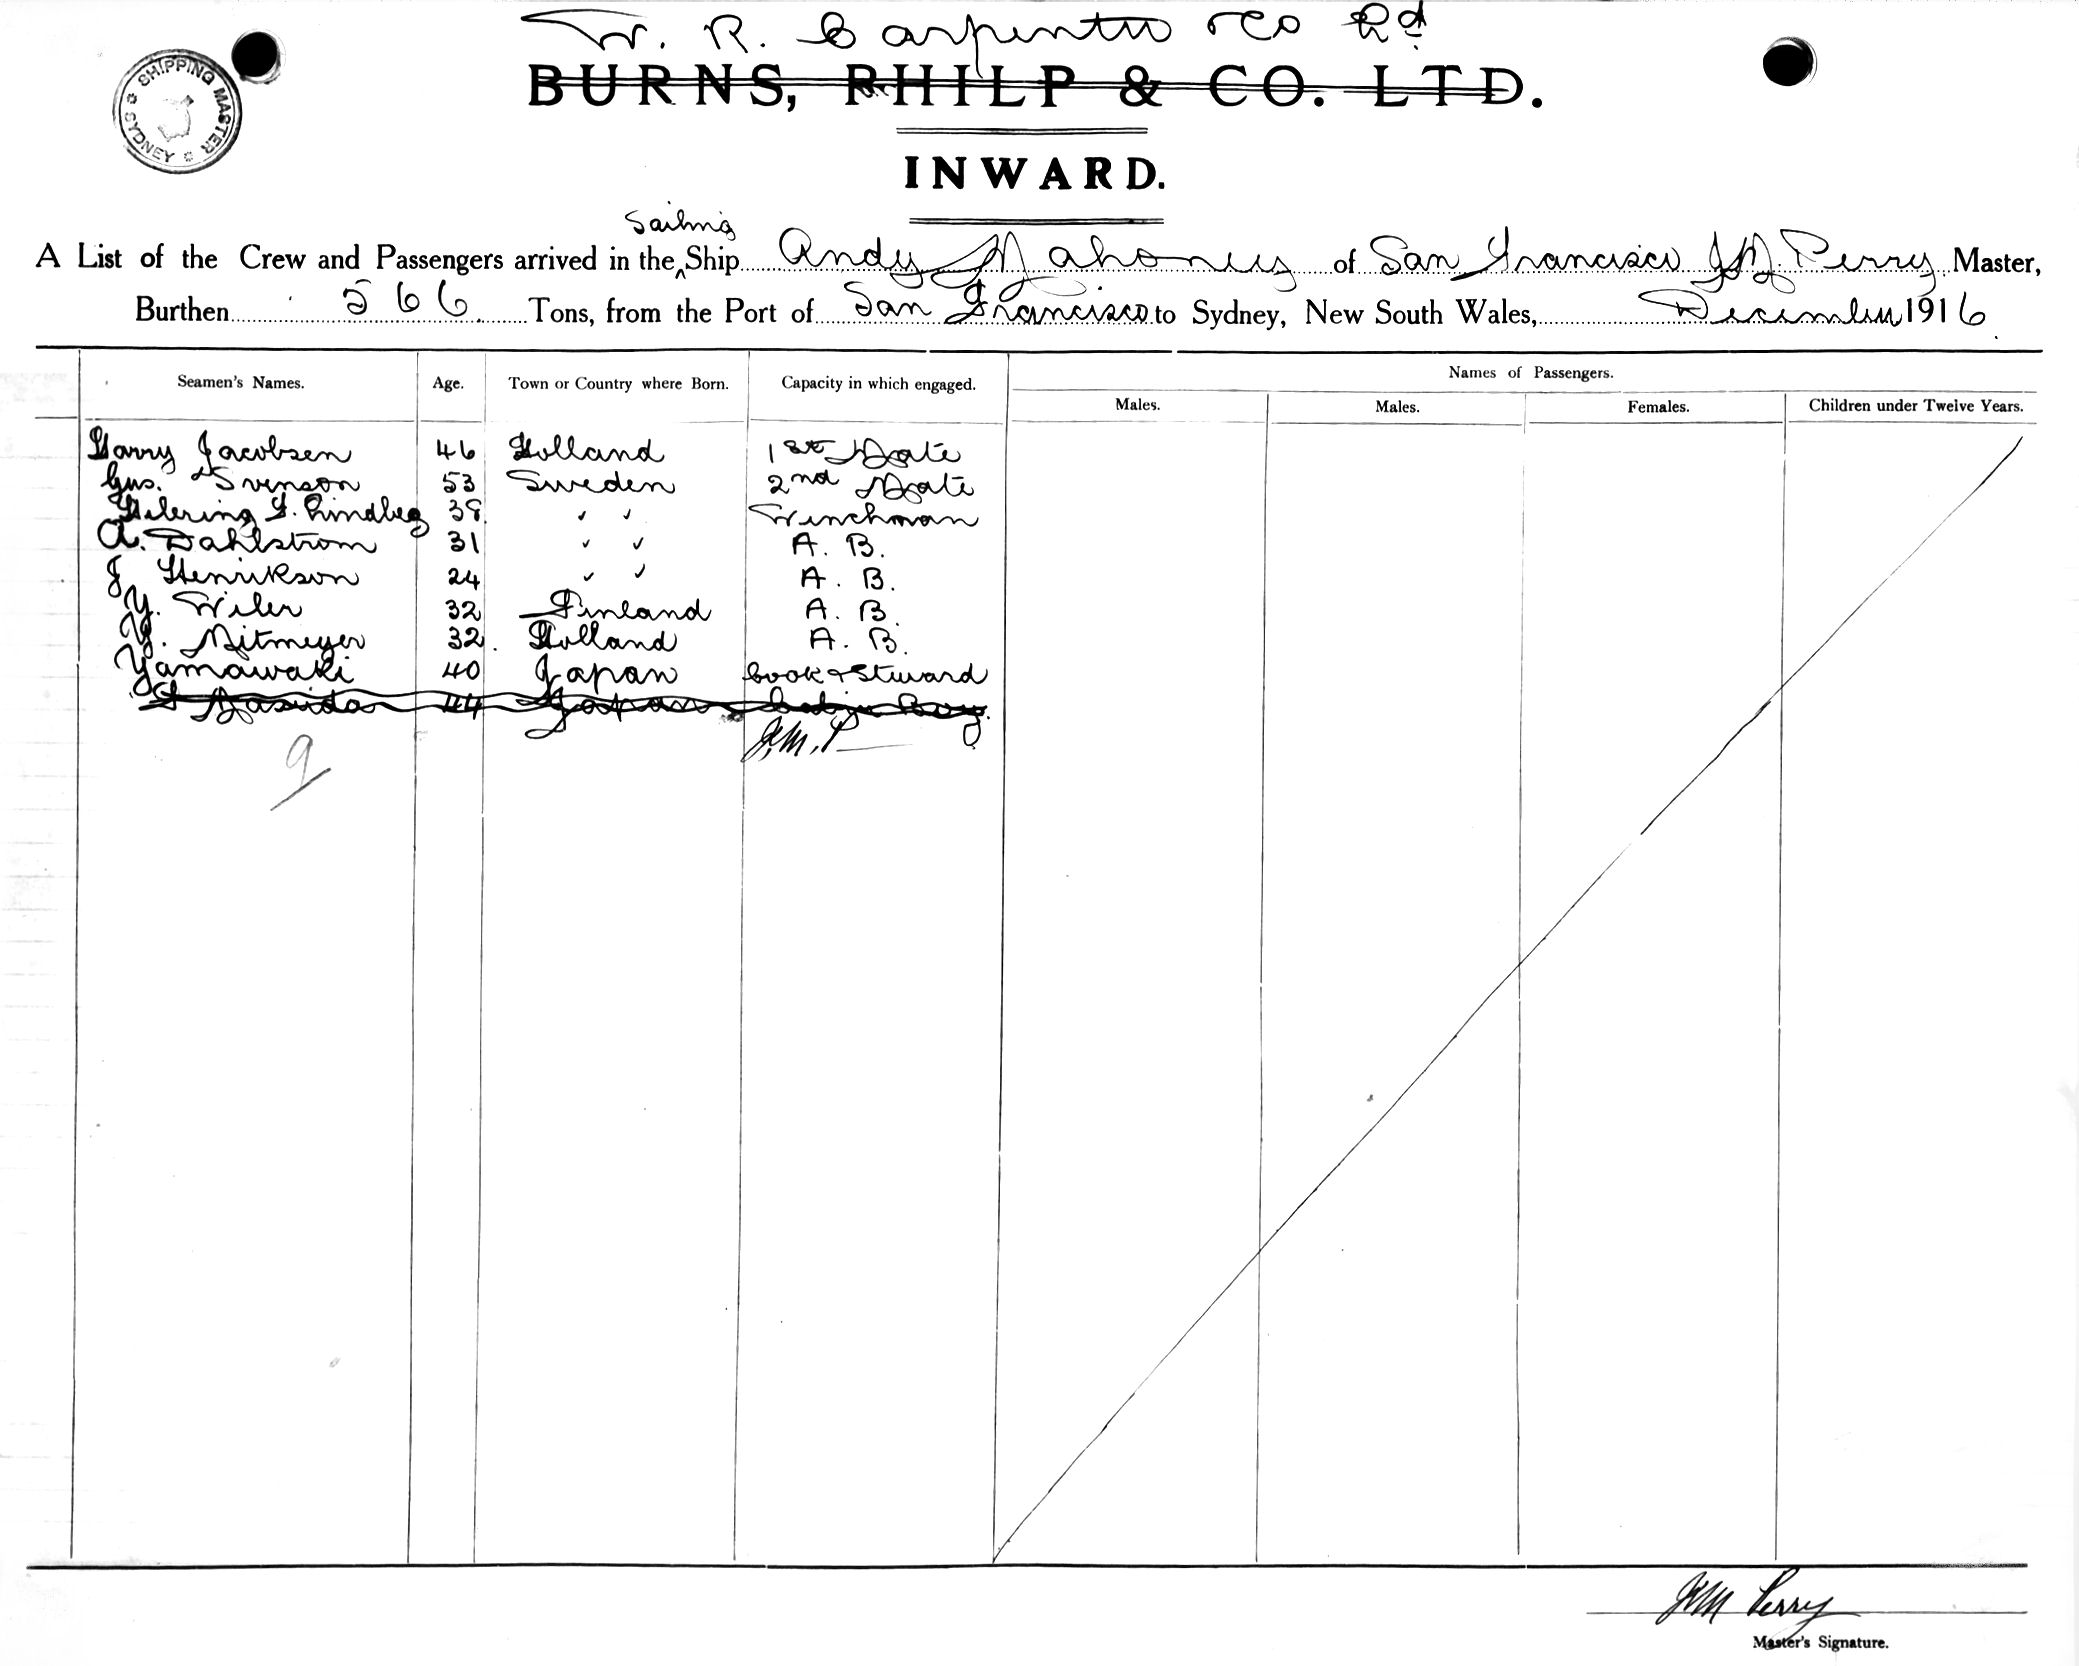 W. R. Carpenter & Co Ltd
BURNS, PHILP & CO. LTD.
SHIPPING MASTER SYDNEY
INWARD.
Sailing
A List of the Crew and Passengers arrived in the ^ Ship Andy Mahoney of San Francisco J.M. Perry Master,
Burthen 566 Tons, from the Port of San Francisco to Sydney, New South Wales, December 1916
Names of Passengers.
Seamen's Names. Age. Town or Country where Born. Capacity in which engaged. Males. Males. Females. Children under Twelve Years.
Harry Jacobsen 46 Holland 1st Mate
Gus. Svenson 53 Sweden 2nd Mate
Lindbeg " " Winchman
A. Dahlstrom 31 " " A. B.
J Henrikson 24 " " A. B.
Y. Wiler 32 Finland A. B.
Y. Mitmeyer 32 Holland A. B.
Yamawaki 40 Japan Cook & Steward
Masuda 44 Japan Cabin Boy
J.M.P
9
JM Perry
Master's Signature.